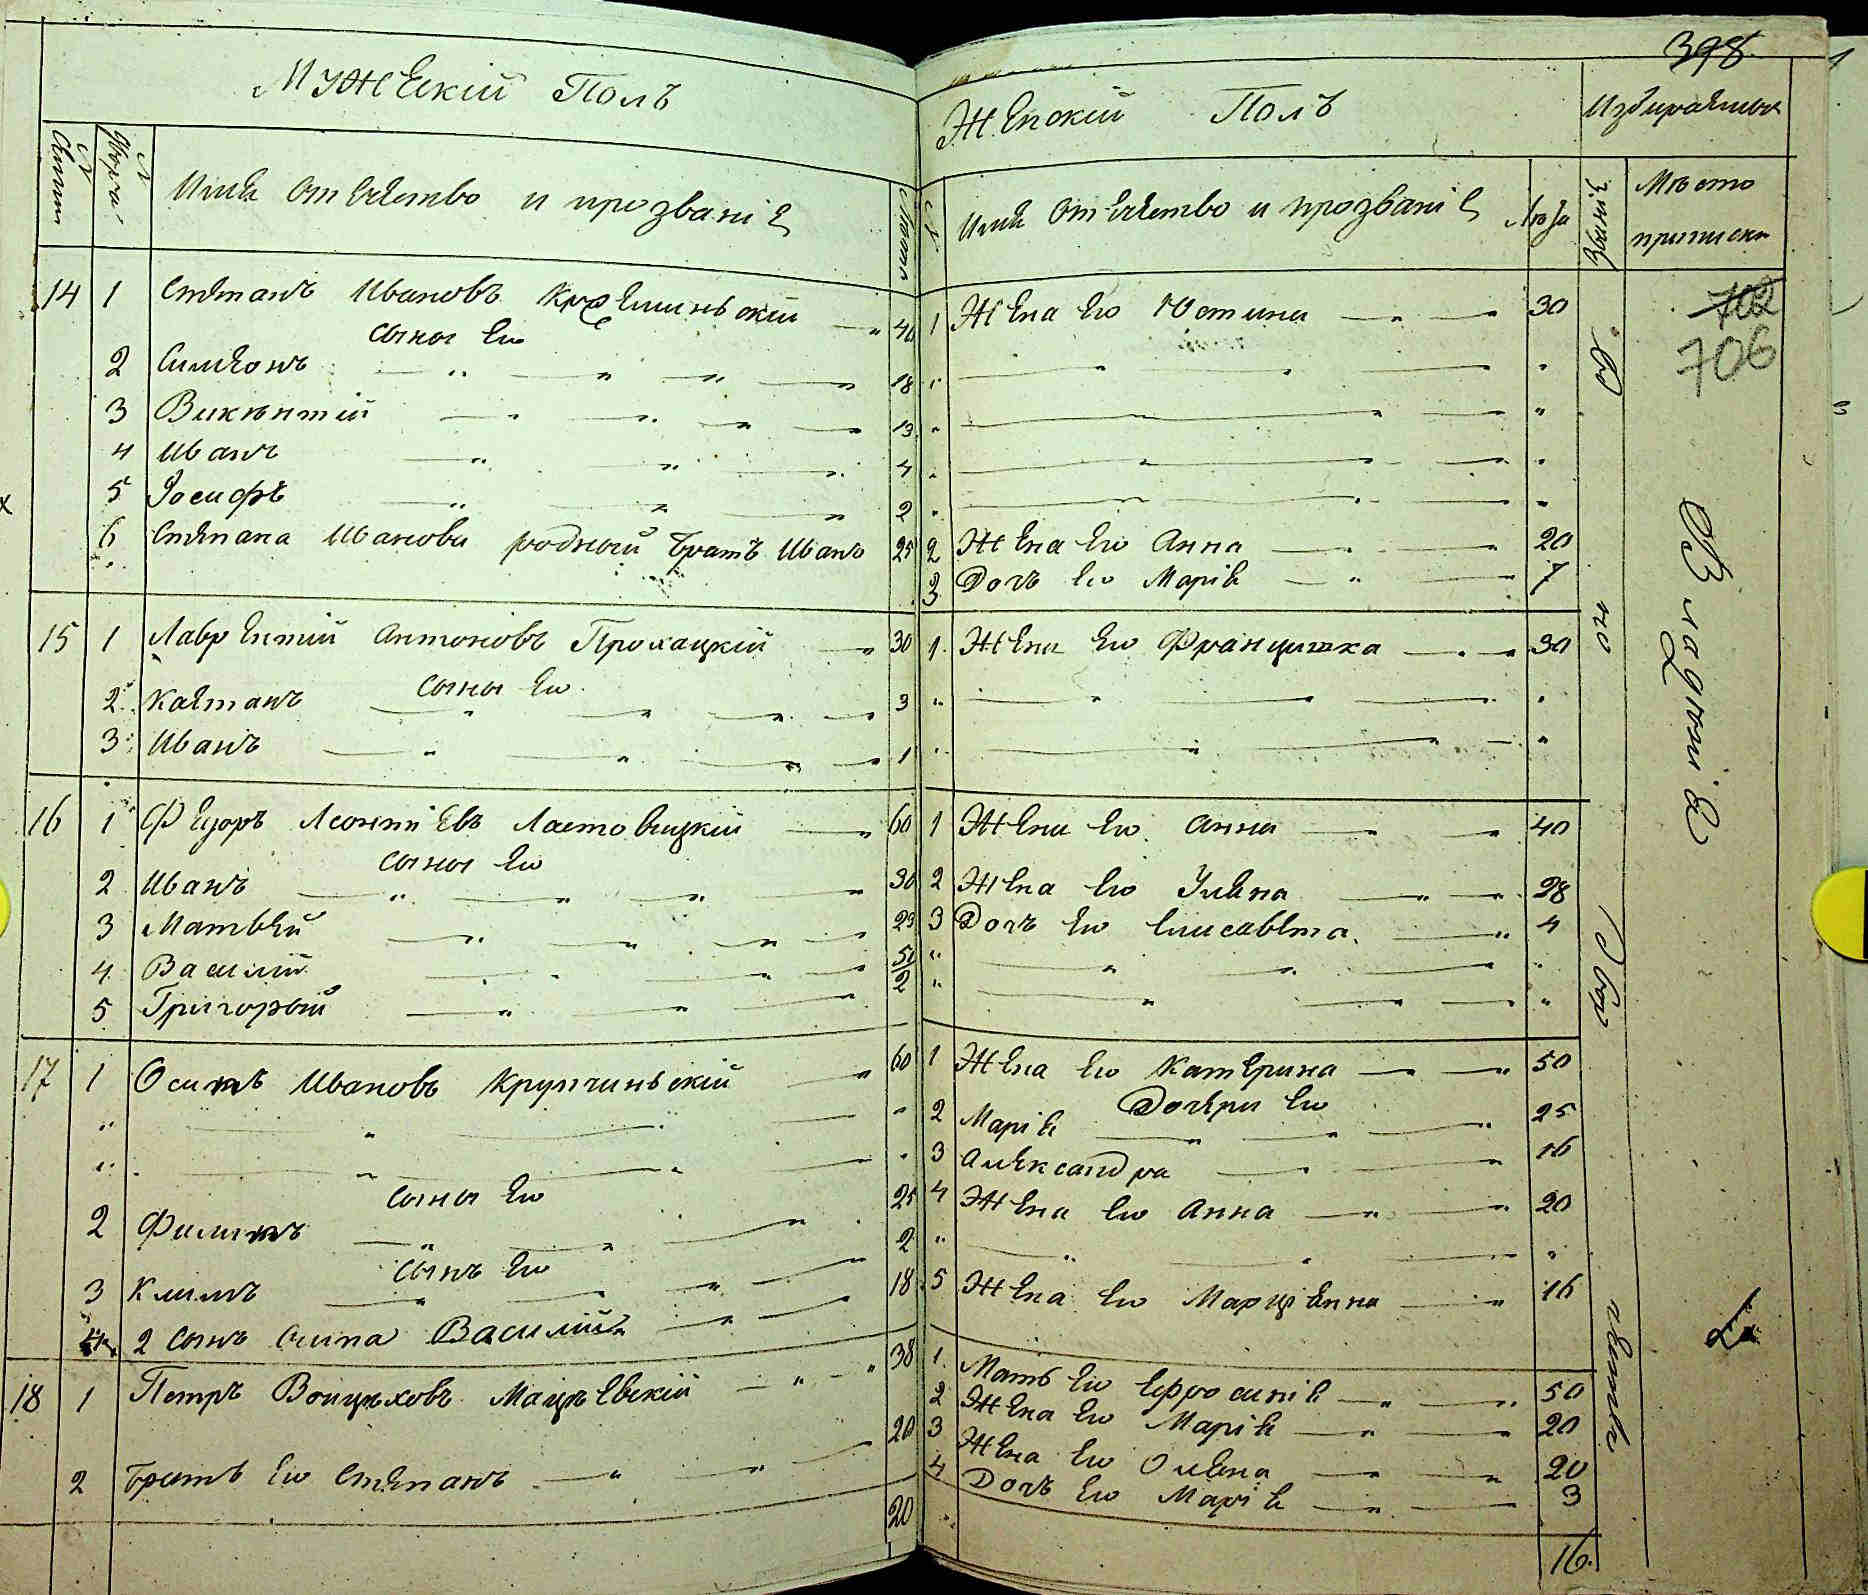 398
Мужескій Полъ
№ Семьи
Имя отечество и прозваніе
Лѣта
14 1 Степанъ Ивановъ 40
Сыны Его
2 Симеонъ 18
3 Викентій 13
4 Иванъ 4
5 Іосифъ 2
6 Степана Иванова родный братъ Иванъ 25
15 1 Лаврентій Антоновъ 30
Сыны Его
2 Каетанъ 3
3 Иванъ 1
16 1 Феодоръ Леонтіевъ Ластовицкій 60
Сыны Его
2 Иванъ 30
3 Матвѣй 23
4 Василій
5 Григорый 2
17 1 Осипъ Ивановъ Крупчиньскій 60
Сыны Его
2 Филипъ 25
Сынъ Его 2
3 Климъ 18
4 2 Сынъ Осипа Василій
18 1 Петръ Войцѣховъ Мацѣевскій 38
2 Братъ Его Степанъ 20
20
Женскій Полъ
№
Имя отечество и прозваніе
Лѣта
Мѣсто приписки
1 Жена Его Юстина 30
2 Жена Его Анна 20
3 Дочъ Его Марія 7
1 Жена Его Францишка 30
1 Жена Его Анна 40
2 Жена Его Улiяна 28
3 Дочъ Его Елисавета 4
1 Жена Его Катерина 50
Дочери Его
2 Марія 25
3 Александра 16
4 Жена Его Анна 20
5 Жена Его Марціянна 16
1 Мать Его Ефросинія 50
2 Жена Его Марія 20
3 Жена Его Олена 20
4 Дочъ Его Марія 3
16
702
706
Владѣніе